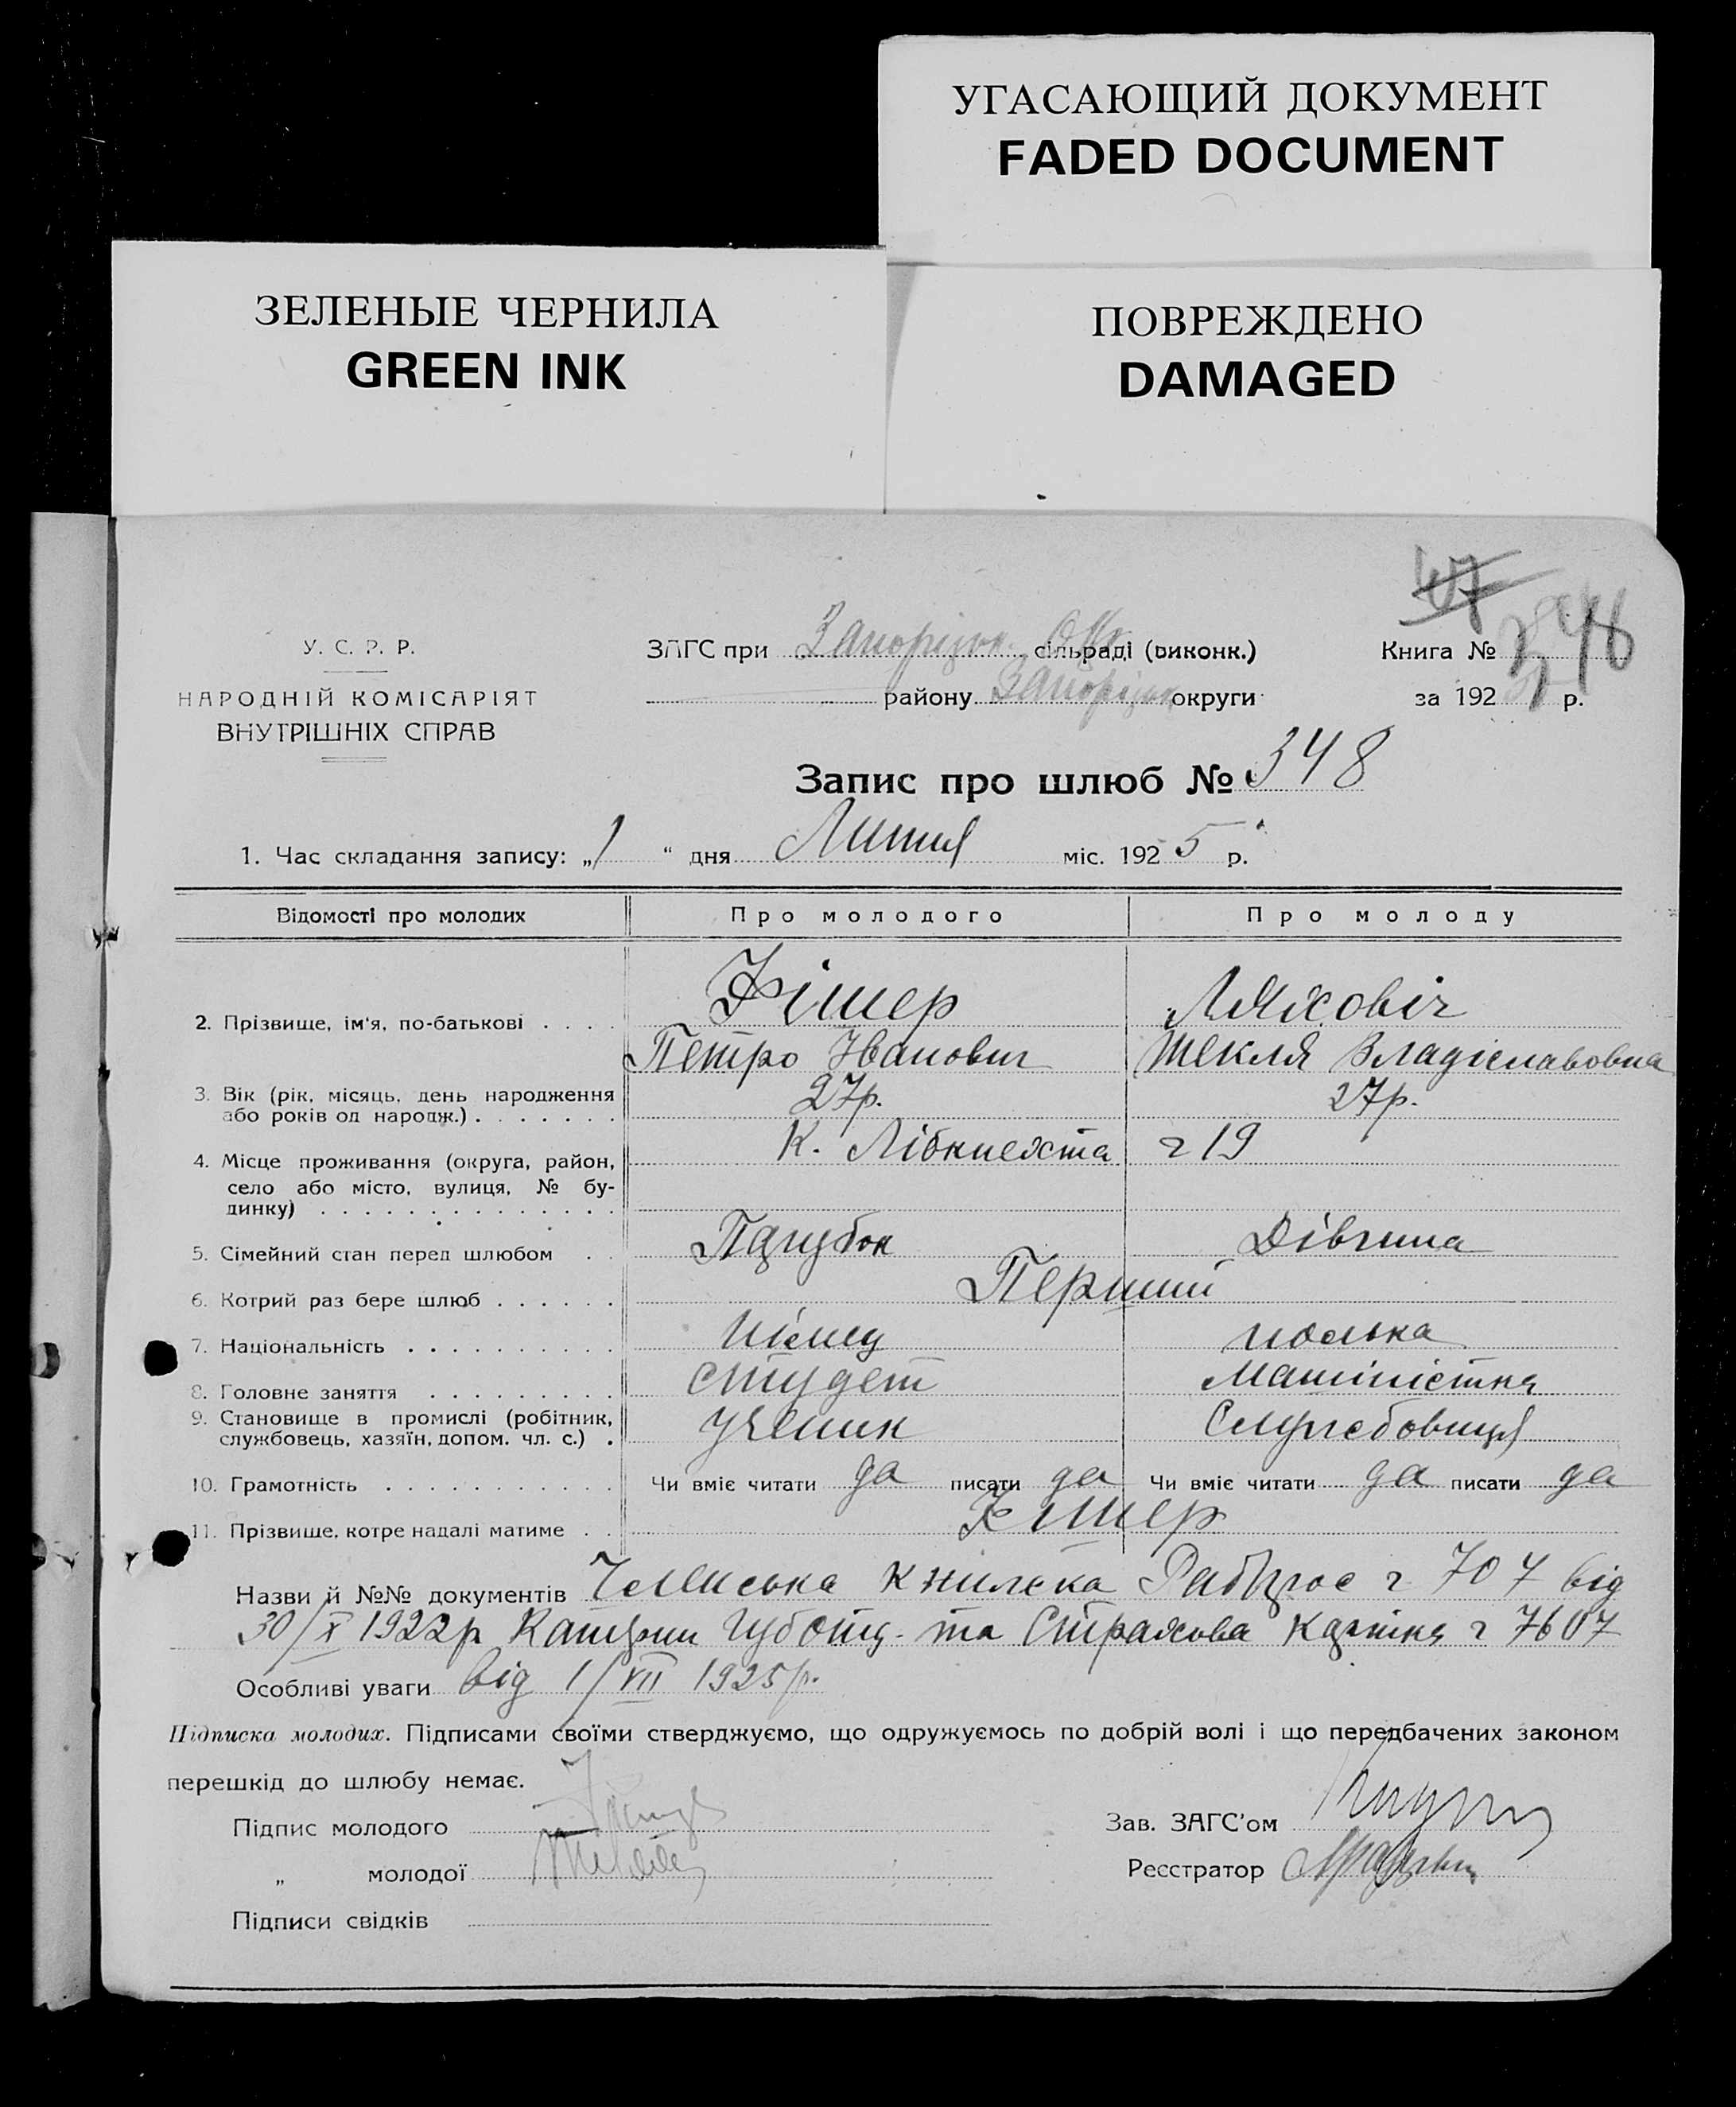 УГАСАЮЩИЙ ДОКУМЕНТ
FADED DOCUMENT
ЗЕЛЕНЫЕ ЧЕРНИЛА
GREEN INK
ПОВРЕЖДЕНО
DAMAGED
47
У. С. Р. Р.
НАРОДНІЙ КОМІСАРІЯТ
ВНУТРІШНІХ СПРАВ
ЗАГС при Запорізьк. сільраді (виконк.)
району Запорізьк округи
Книга № 348
за 192 р.
Запис про шлюб № 348
1. Час складання запису: „1“ дня Липня міс. 1925 р.
Відомості про молодих Про молодого Про молоду
2. Прізвище, ім'я, по-батькові . . . . Фішер Ляховіч
Петро Іванович Текля Владіславовна
3. Вік (рік, місяць, день народження 27р. 27р.
або років од народж.) . . . . . . .
4. Місце проживання (округа, район, К. Лібкнехта ч 19
село або місто, вулиця, № бу-
динку) . . . . . . . . . . . . . .
5. Сімейний стан перед шлюбом . Парубок Дівчина
6. Котрий раз бере шлюб . . . . . . Перший
7. Національність . . . . . . . . . . Німец полька
8. Головне заняття . . . . . . . . . студент Машиністка
9. Становище в промислі (робітник, ученик Службовиця
службовець, хазяїн, допом. чл. с.) .
10. Грамотність . . . . . . . . . . . Чи вміє читати да писати да Чи вміє читати да писати да
11. Прізвище, котре надалі матиме . . Фішер
Назви й №№ документів Членська книжка ч 707 від
30/X 1922р та Страхова картка ч 7607
Особливі уваги від 1/VII 1925р.
Підписка молодих. Підписами своїми стверджуємо, що одружуємось по добрій волі і що передбачених законом
перешкід до шлюбу немає.
Підпис молодого
Зав. ЗАГС'ом
„ молодої
Реєстратор
Підписи свідків